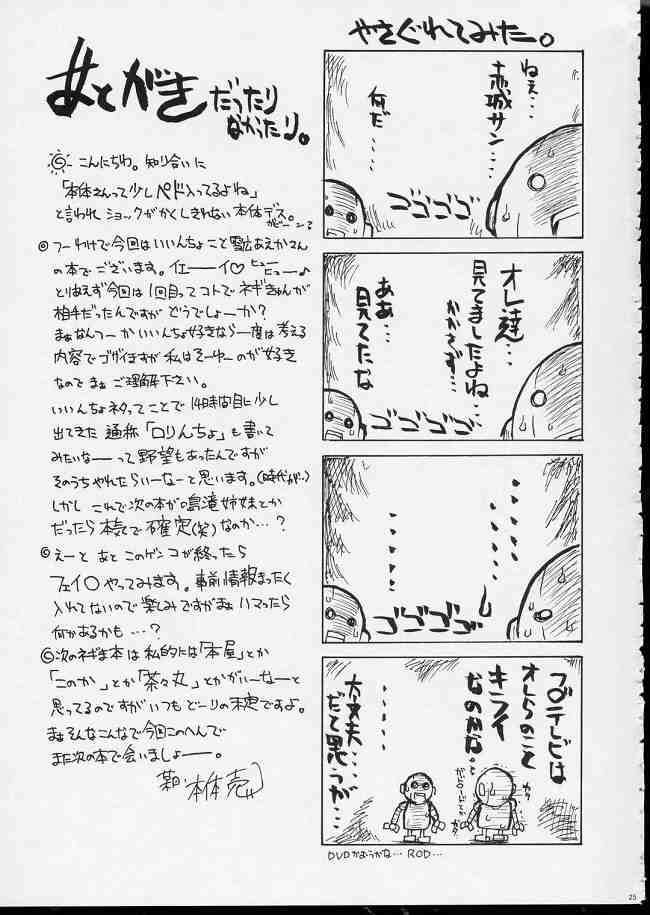 やさぐれてみたー。
ねぇ・・・
赤城サン・・・
何だ・・・・
ゴゴゴゴ
オレ達・・・
見てましたよね・・・
かかさず・・・
ああ・・・
見てたな
ゴゴゴゴ
ゴゴゴゴ
フジテレビは
オレらのこと
キライ
なのかな。
大丈夫・・・・
だと思うが・・・
DVDかおうかな・・・ ROD・・・
あとがきだったり
なかったり。
こんにちわ。知り合いに
「本体さんって少しペド入ってるよね」
と言われショックがかくしきれない本体デス。
ガビーンる
フーわけで今回はいいんちょこと雪広あやかさん
の本でございます。イェーーイ♡ヒュー
ヒュー♪
とりあえず今回は1回目ってコトでネギきゅんが
相手だったんですがどうでしょーか?
まぁなんつーかいいんちょ好きなら一度は考える
内容でゴザイますが私はそーゆーのが好き
なのでまぁご理解下さい。
いいんちょネタってことで14時間目に少し
出てきた通称「ロリんちょ」も書いて
みたいなーーって野望もあったんですが
そのうちやれたらいーなーと思います。(時代が・・)
しかしこれで次の本が鳴滝姉妹とか
だったら本気で確定(笑)なのか・・・?
えーとあとこのゲンコが終ったら
フェイ○やってみます。事前情報まったく
入れてないので楽しみですがまぁハマったら
何かあるかも・・・?
次のネギま本は私的には「本屋」とか
「このか」とか「茶々丸」とかがいーなーと
思ってるのですがいつもどーりの未定ですよ。
まぁそんなこんなで今回このへんで
また次の本で会いましょーー。
本体売
25